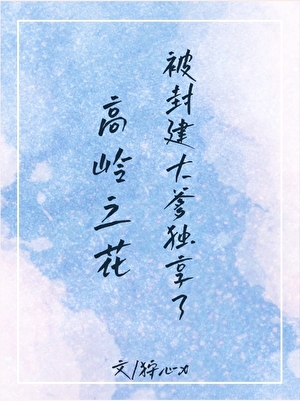 高岭之花
被封建大爹独享了
文/心力